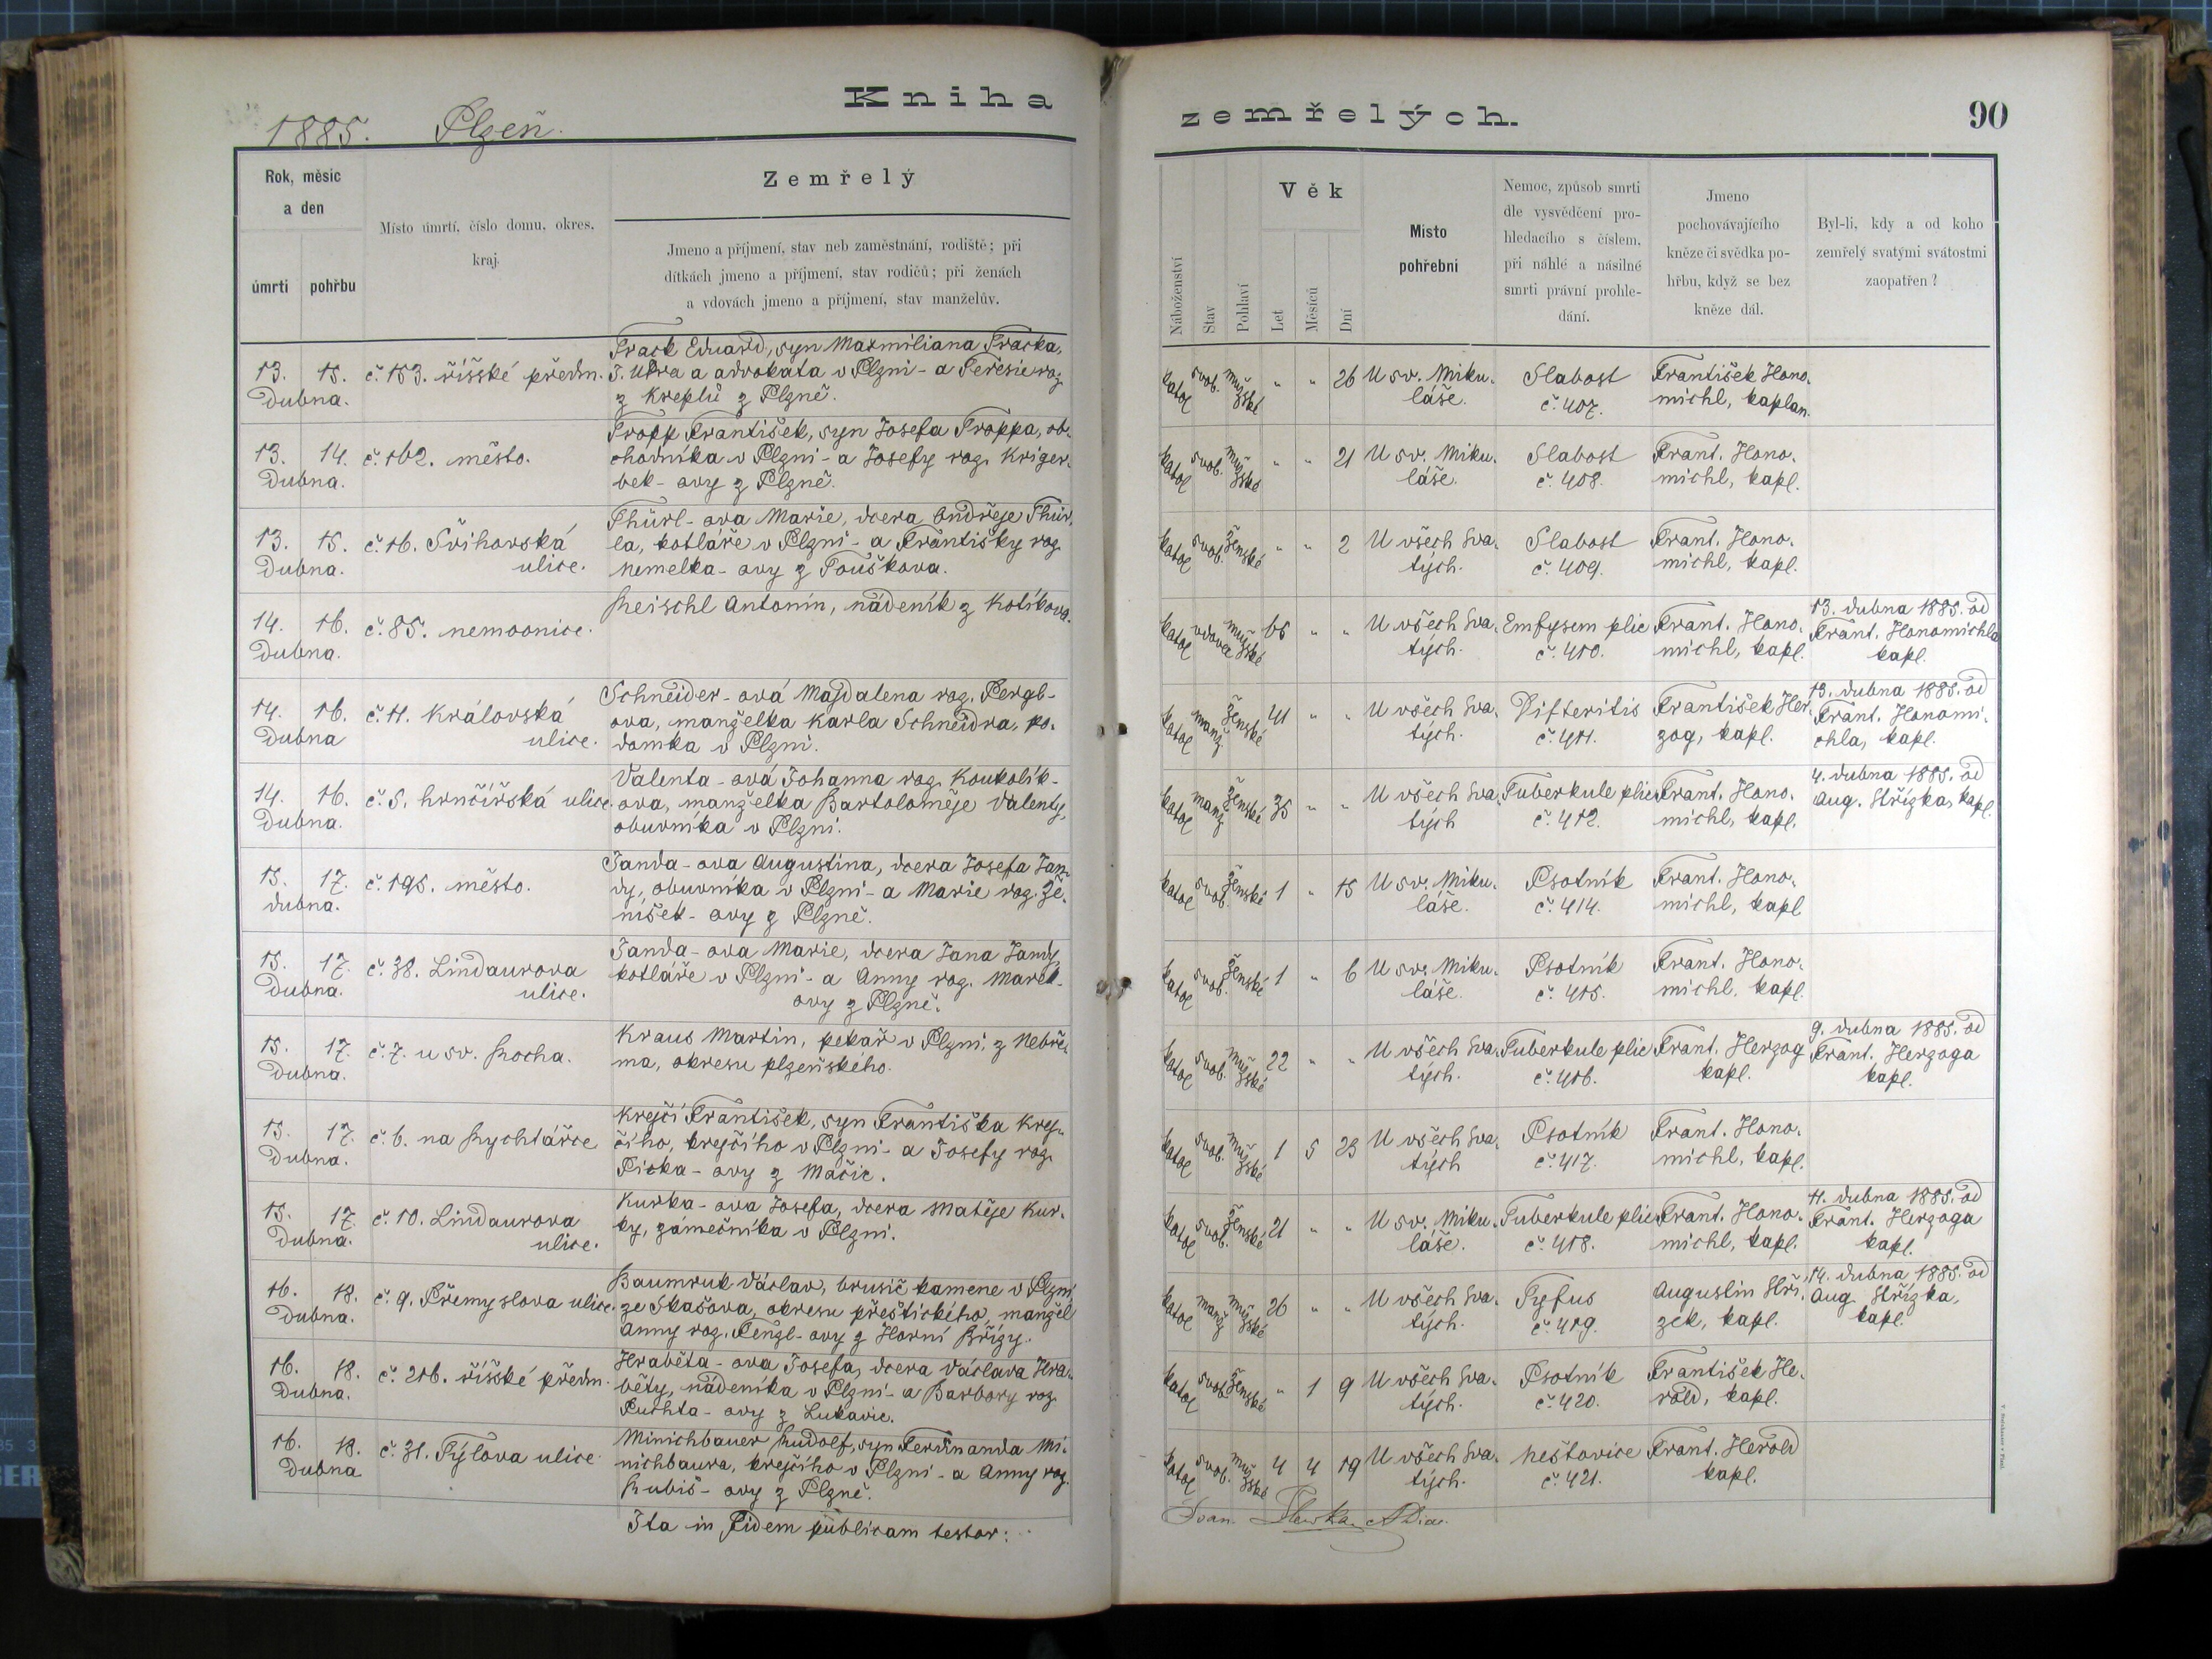 Kniha
zemřelých.
90
1885. Plzeň.
Rok, měsíc
a den
úmrtí
pohřbu
Místo úmrtí, číslo domu, okres,
kraj.
Zemřelý
Jmeno a příjmení, stav neb zaměstnání, rodiště; při
dítkách jmeno a příjmení, stav rodičů; při ženách
a vdovách jmeno a příjmení, stav manželův.
Náboženství
Stav
Pohlaví
Věk
Let
Měsíců
Dní
Místo
pohřební
Nemoc, způsob smrti
dle vysvědčení pro-
hledacího s číslem,
při náhlé a násilné
smrti právní prohle-
dání.
Jmeno
pochovávajícího
kněze či svědka po-
hřbu, když se bez
kněze dál.
Byl-li, kdy a od koho
zemřelý svatými svátostmi
zaopatřen?
13. 15.
Dubna.
č. 153. říšské předm.
Track Eduard, syn Maxmiliana Tracka,
J. UDra a advokáta v Plzni - a Teresie roz.
z Kreplů z Plzně.
katol svob. mužské " " 26
U sv. Miku-
láše.
Slabost
č. 407.
František Hono-
michl, kaplan.
13. 14.
Dubna.
č. 162. město.
Tropp František, syn Josefa Troppa, ob-
chodníka v Plzni - a Josefy roz. Kriger-
bek - ovy z Plzně.
katol svob. mužské " " 21
U sv. Miku-
láše.
Slabost
č. 408.
Frant. Hono-
michl, kapl.
13. 15.
Dubna.
č. 16.
ulice.
Thürl - ova Marie, dcera Ondřeje Thür-
la, kotláře v Plzni - a Františky roz.
Nemelka - ovy z Touškova.
katol svob. ženské " " 2
U všech Sva-
tých.
Slabost
č. 409.
Frant. Hono-
michl, kapl.
14. 16.
Dubna.
č. 85. nemocnice.
Reischl Antonín, nádeník z Kotíkova.
katol vdovec mužské 65 " "
U všech Sva-
tých.
Emfysem plic
č. 410.
Frant. Hono-
michl, kapl.
13. dubna 1885. od
Frant. Honomichla
kapl.
14. 16.
Dubna
č. 11. Královská
ulice.
Schneider - ová Majdalena roz. Pergl-
ova, manželka Karla Schneidra, po-
domka v Plzni.
katol manž ženské 41 " "
U všech Sva-
tých.
Difteritis
č. 411.
František Her-
zog, kapl.
13. dubna 1885. od
Frant. Honomi-
chla, kapl.
14. 16.
Dubna.
č. 5. hrnčířská ulice.
Valenta - ová Johanna roz. Koukolík-
ova, manželka Bartoloměje Valenty,
obuvníka v Plzni.
katol manž ženské 35 " "
U všech Sva-
tých
Tuberkule plic
č. 412.
Frant. Hono-
michl, kapl.
4. dubna 1885. od
Aug. Střízka, kapl.
15. 17.
dubna.
č. 195. město.
Janda - ova Augustina, dcera Josefa Jan-
dy, obuvníka v Plzni - a Marie roz. Že-
níšek - ovy z Plzně.
katol svob. ženské 1 " 15
U sv. Miku-
láše.
Psotník
č. 414.
Frant. Hono-
michl, kapl
15. 17.
Dubna.
č. 38. Lindaurova
ulice.
Janda - ova Marie, dcera Jana Jandy
kotláře v Plzni - a Anny roz. Marek-
ovy z Plzně.
katol svob. ženské 1 " 6
U sv. Miku-
láše.
Psotník
č. 415.
Frant. Hono-
michl, kapl.
15. 17.
Dubna.
č. 7. u sv. Rocha.
Kraus Martin, pekař v Plzni, z Nebře-
ma, okresu plzeňského.
katol svob. mužské 22 " "
U všech Sva-
tých.
Tuberkule plic
č. 416.
Frant. Herzog
kapl.
9. dubna 1885. od
Frant. Herzoga
kapl.
15. 17.
Dubna.
č. 6. na Rychtářce
Krejčí František, syn Františka Krej-
čího, krejčího v Plzni - a Josefy roz.
Picka - ovy z Mačic.
katol svob. mužské 1 5 23
U všech Sva-
tých
Psotník
č. 417.
Frant. Hono-
michl, kapl.
15. 17.
Dubna.
č. 10. Lindaurova
ulice.
Kurka - ova Josefa, dcera Matěje Kur-
ky, zámečníka v Plzni.
katol svob. ženské 21 " "
U sv. Miku-
láše.
Tuberkule plic
č. 418.
Frant. Hono-
michl, kapl.
11. dubna 1885. od
Frant. Herzoga
kapl.
16. 18.
Dubna.
č. 9. Přemyslova ulice.
Baumruk Václav, brusič kamene v Plzni
ze Skašova, okresu přeštického, manžel
Anny roz. Fengl - ovy z Horní Břízy.
katol manž mužské 26 " "
U všech Sva-
tých.
Tyfus
č. 419.
Augustin Stří-
zek, kapl.
14. dubna 1885. od
Aug. Střízka,
kapl.
16. 18.
Dubna.
č. 216. říšské předm.
Hraběta - ova Josefa, dcera Václava Hra-
běty, nádeníka v Plzni - a Barbory roz.
Puchta - ovy z Lukavic.
katol svob. ženské " 1 9
U všech Sva-
tých.
Psotník
č. 420.
František He-
rold, kapl.
16. 18.
Dubna
č. 31. Týlova ulice.
Minichbauer Rudolf, syn Ferdinanda Mi-
nichbaura, krejčího v Plzni - a Anny roz.
Rubiš - ovy z Plzně.
katol svob. mužské 4 4 19
U všech Sva-
tých.
Neštovice
č. 421.
Frant. Herold
kapl.
Ita in Fidem publicam testor: